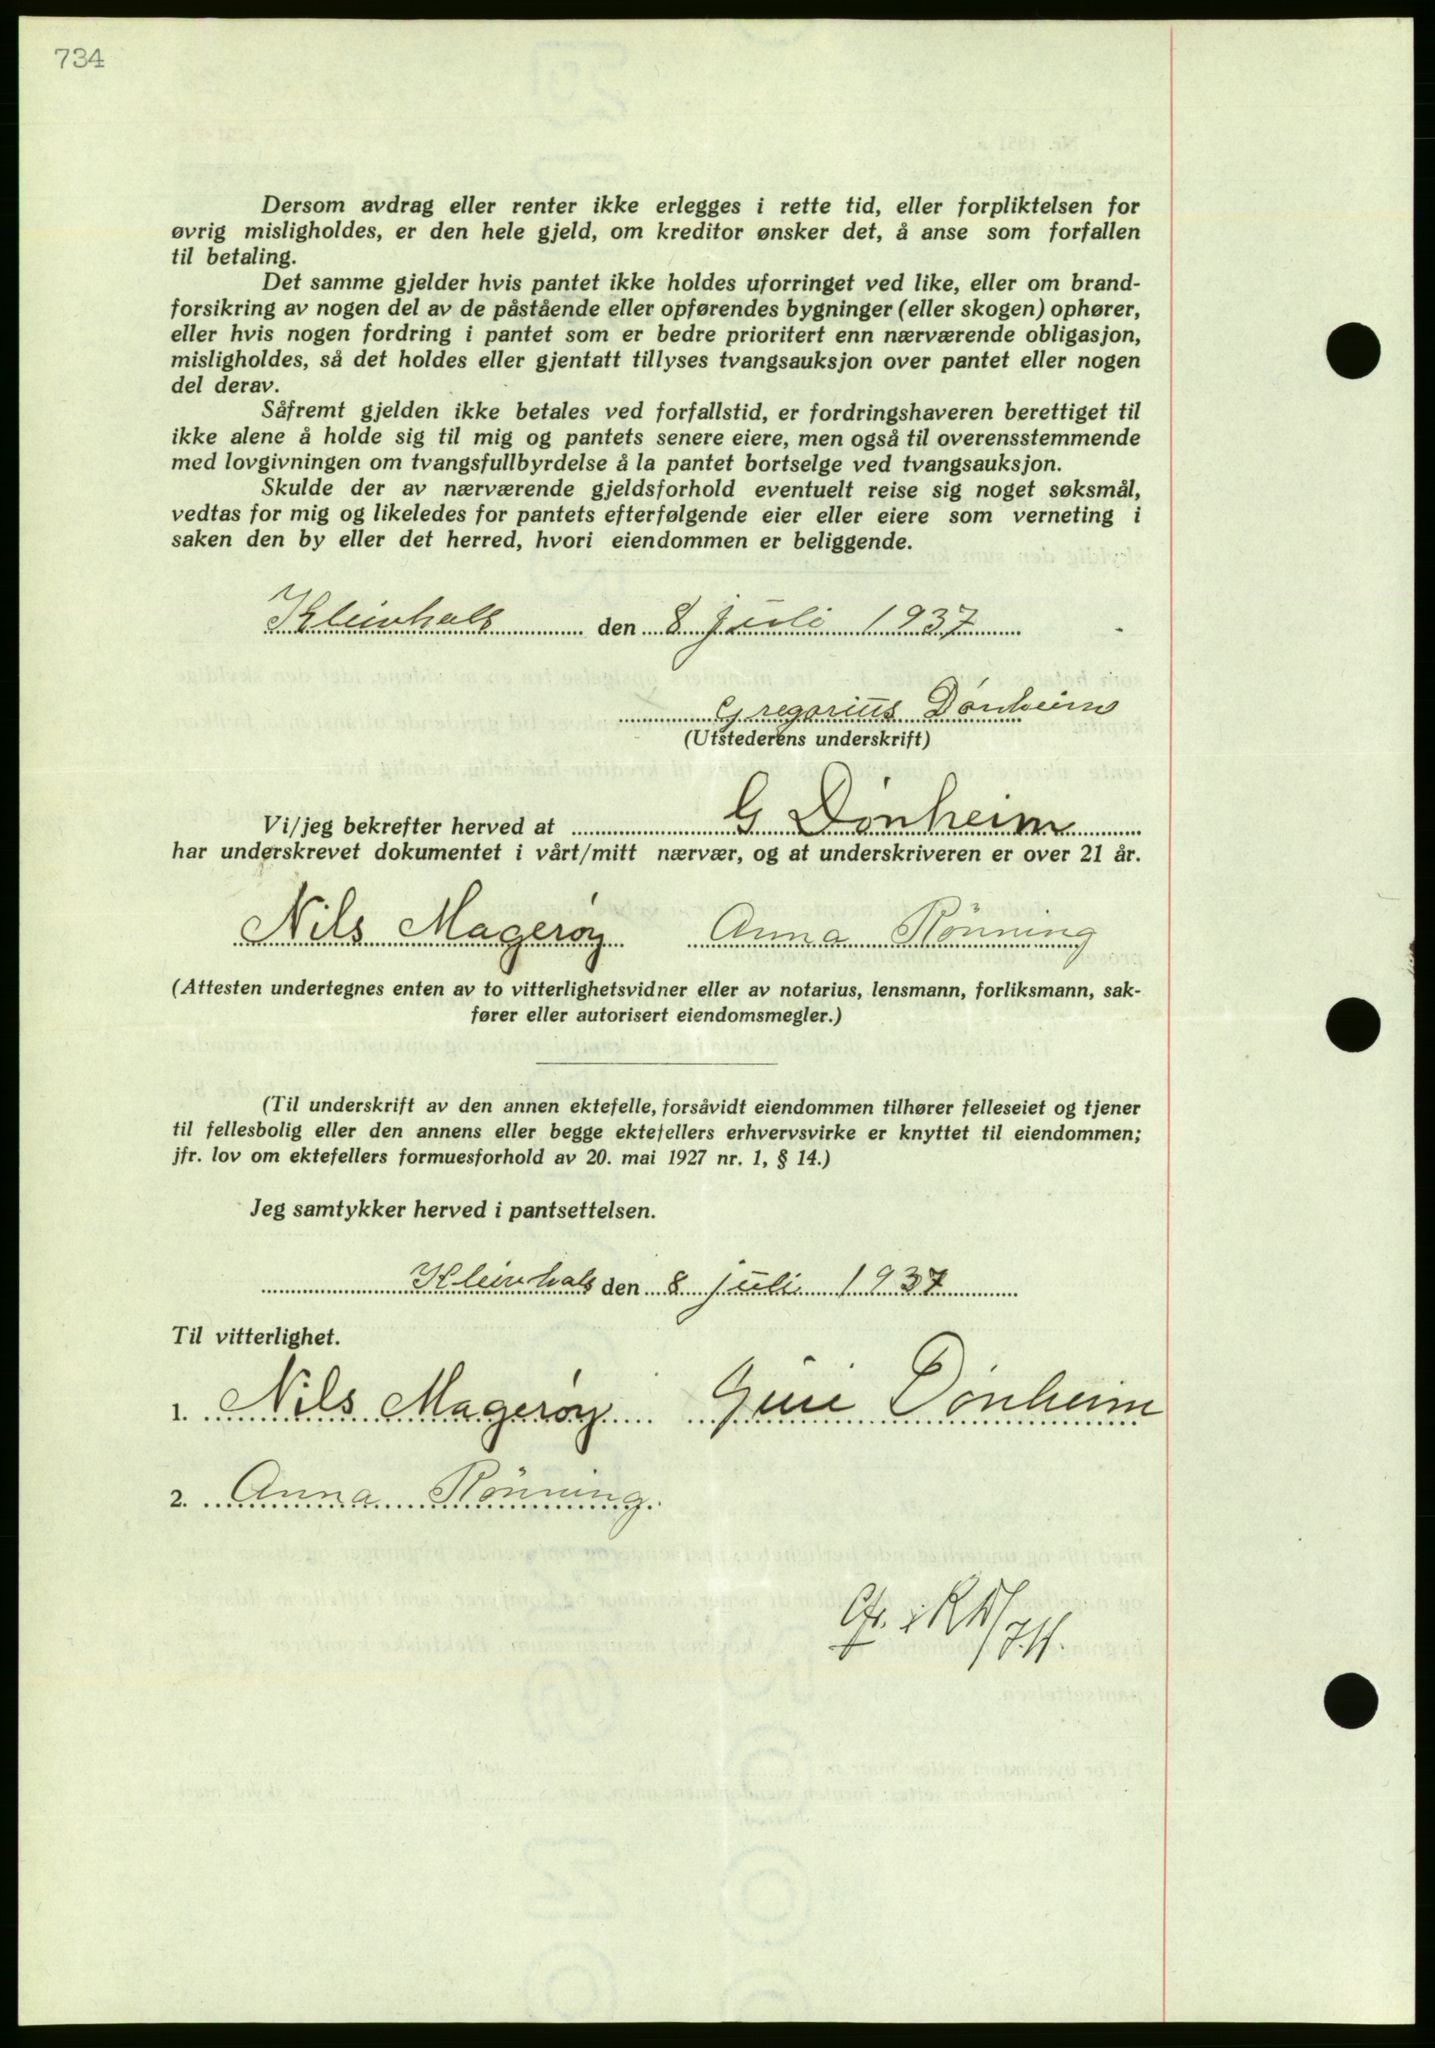 734
Dersom avdrag eller renter ikke erlegges i rette tid, eller forpliktelsen for
øvrig misligholdes, er den hele gjeld, om kreditor ønsker det, å anse som forfallen
til betaling.
Det samme gjelder hvis pantet ikke holdes uforringet ved like, eller om brand-
forsikring av nogen del av de påstående eller opførendes bygninger (eller skogen) ophører,
eller hvis nogen fordring i pantet som er bedre prioritert enn nærværende obligasjon,
misligholdes, så det holdes eller gjentatt tillyses tvangsauksjon over pantet eller nogen
del derav.
Såfremt gjelden ikke betales ved forfallstid, er fordringshaveren berettiget til
ikke alene å holde sig til mig og pantets senere eiere, men også til overensstemmende
med lovgivningen om tvangsfullbyrdelse å la pantet bortselge ved tvangsauksjon.
Skulde der av nærværende gjeldsforhold eventuelt reise sig noget søksmål,
vedtas for mig og likeledes for pantets efterfølgende eier eller eiere som verneting i
saken den by eller det herred, hvori eiendommen er beliggende.
Kleivhals den 8 juli 1937
Gregorius Dønheim
(Utstederens underskrift)
Vi/jeg bekrefter herved at G Dønheim
har underskrevet dokumentet i vårt/mitt nærvær, og at underskriveren er over 21 år.
Nils Magerøy Anna Rönning
(Attesten undertegnes enten av to vitterlighetsvidner eller av notarius, lensmann, forliksmann, sak-
fører eller autorisert eiendomsmegler.)
(Til underskrift av den annen ektefelle, forsåvidt eiendommen tilhører felleseiet og tjener
til fellesbolig eller den annens eller begge ektefellers erhvervsvirke er knyttet til eiendommen;
jfr. lov om ektefellers formuesforhold av 20. mai 1927 nr. 1, § 14.)
Jeg samtykker herved i pantsettelsen.
Kleivhals den 8 juli 1937
Til vitterlighet.
1. Nils Magerøy Guri Dønheim
2. Anna Rönning.